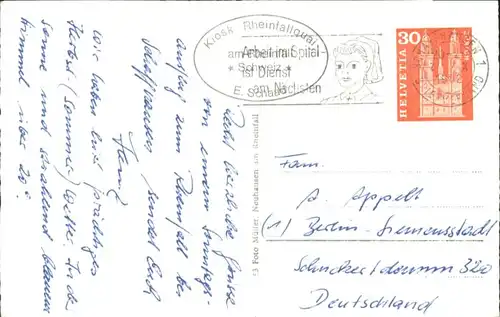 Kiosk Rheinfallquai
am Rheinfall
* Schweiz *
E. Schaad
Arbeit im Spital
ist Dienst
am Nächsten
HELVETIA 30
Recht herzliche Grüsse
von einem Sonntags-
ausflug zum Rheinfall bei
Schaffhausen sendet Euch
Wir haben hier prächtiges
Herbst- (Sommer) Wetter. Ja die
Sonne und strahlend blauer
Himmel über 20°.
Foto Müller, Neuhausen am Rheinfall
Fam.
A. Appelt
(1) Berlin-Siemensstadt
Schuckertdamm 320
Deutschland